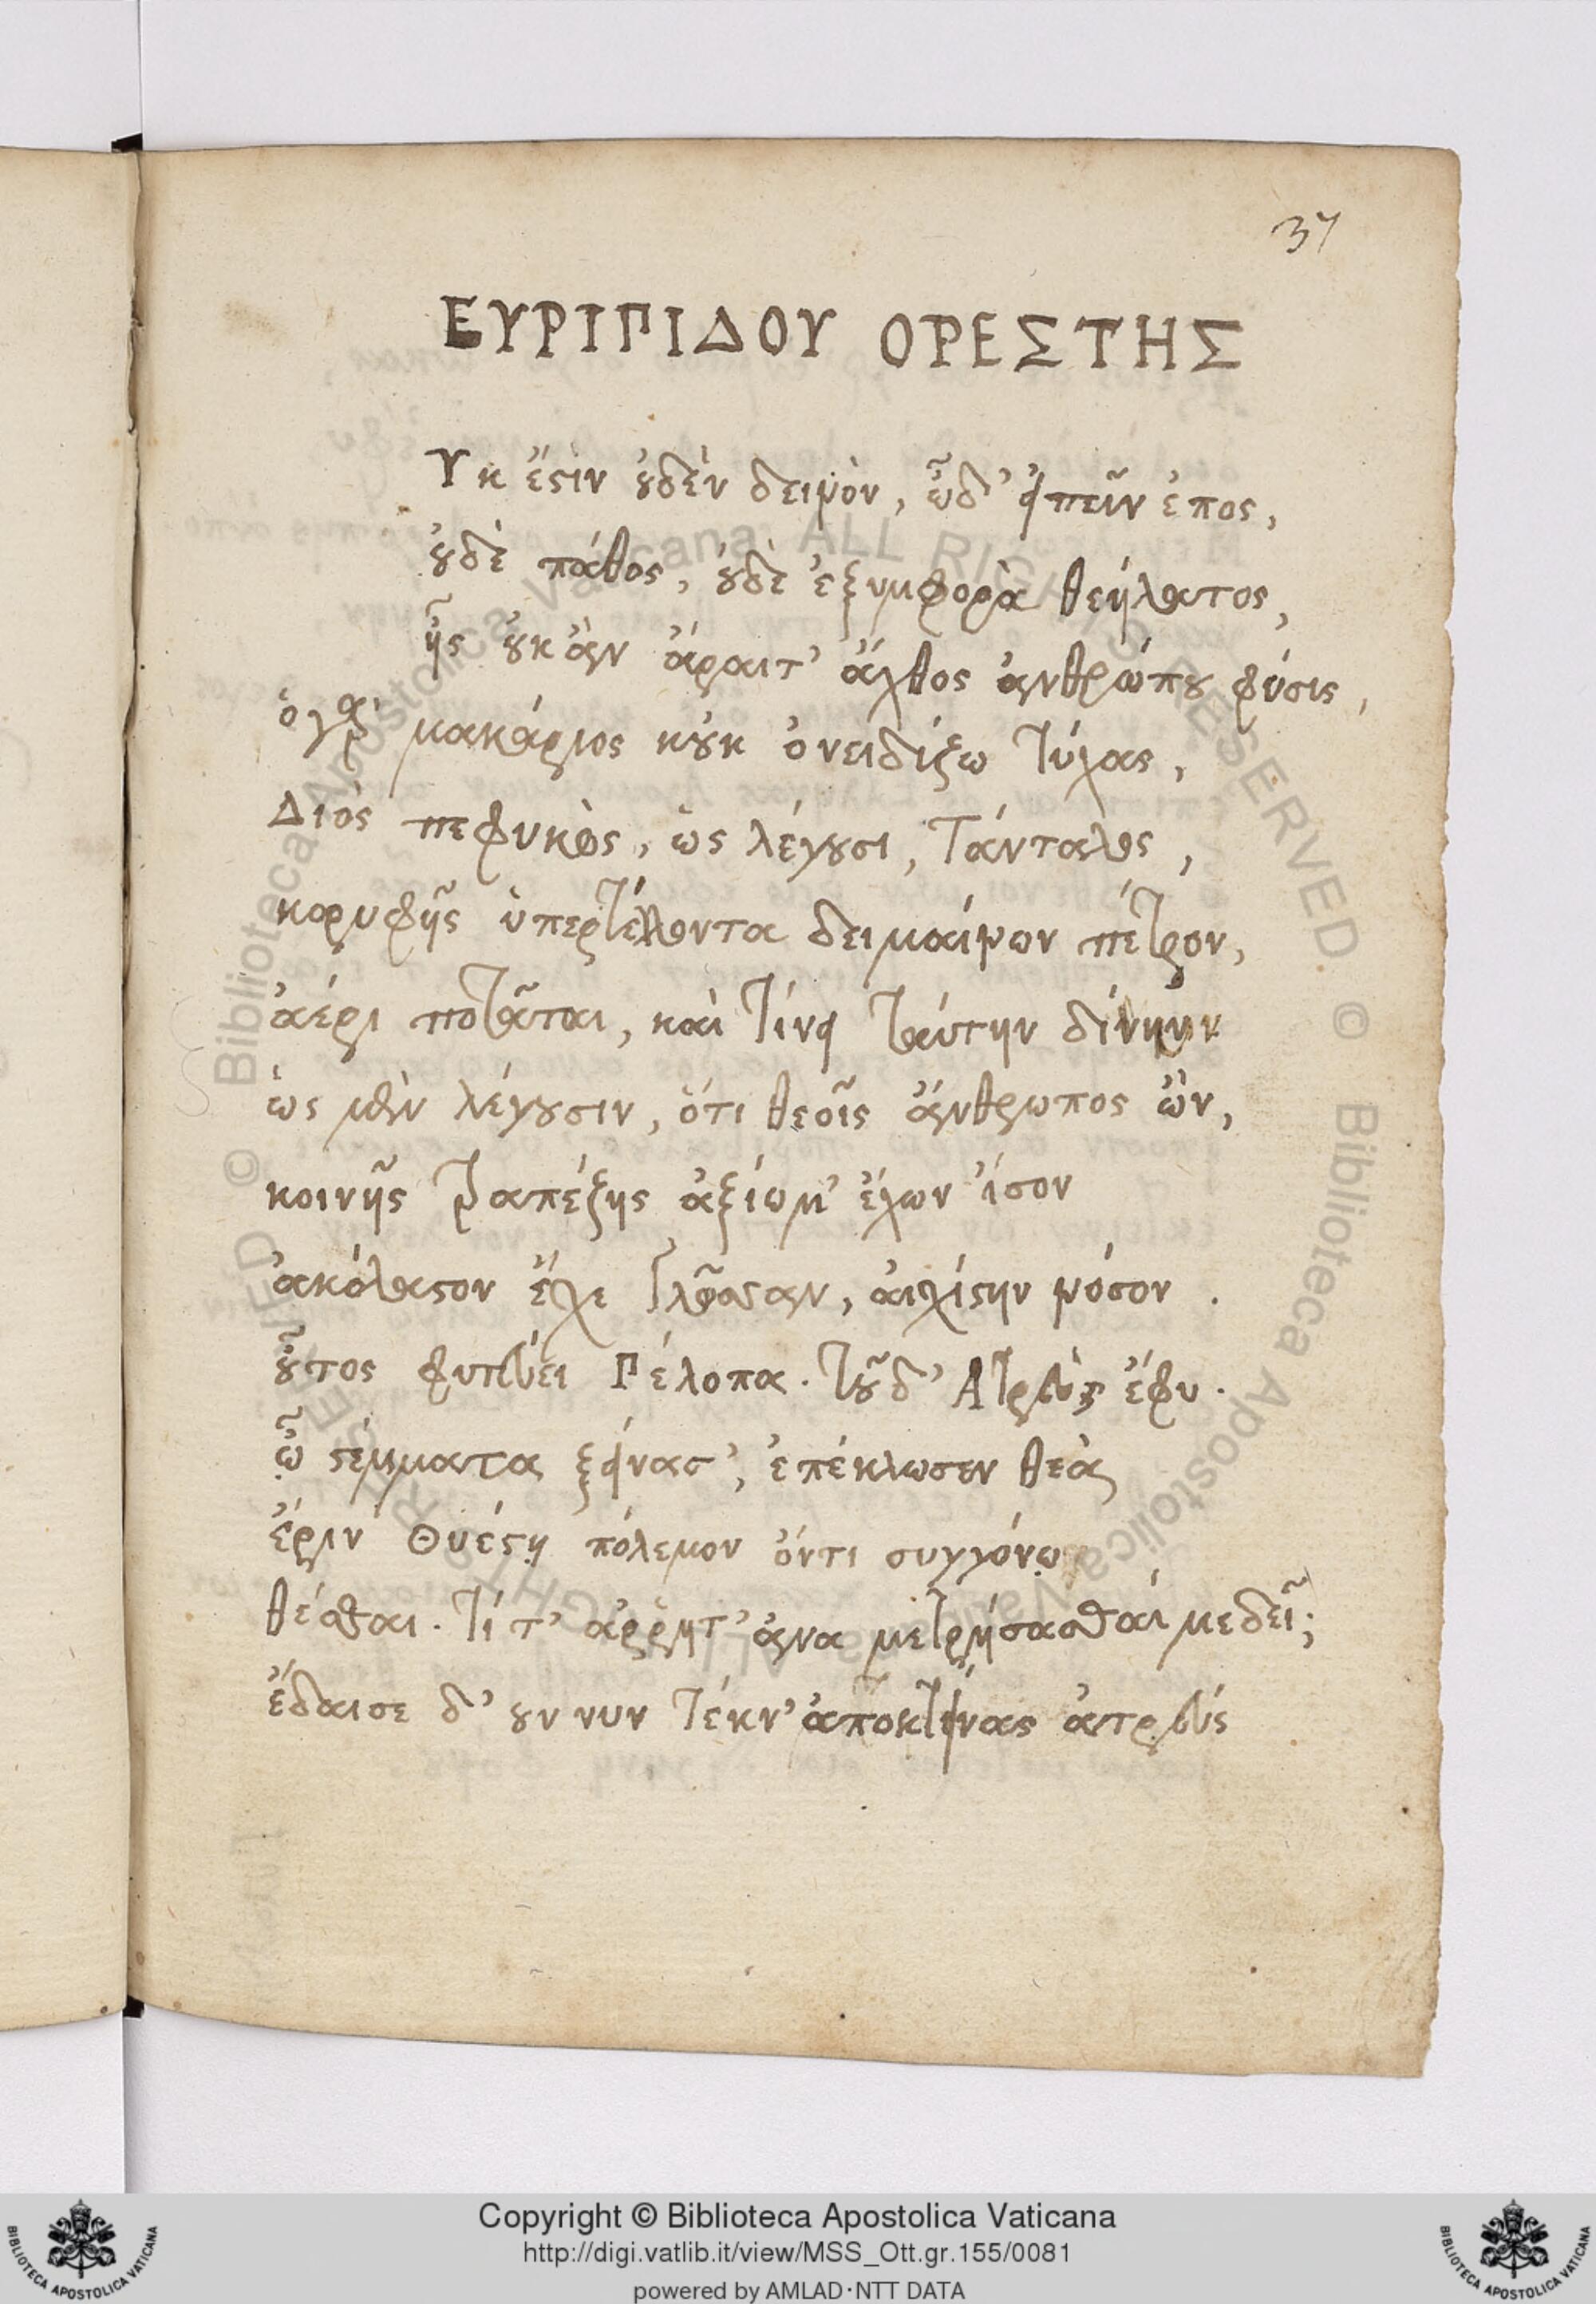 37
ΕΥΡΙΠΙΔΟΥ ΟΡΕΣΤΗΣ
Υκ ἔϛιν ȣ̓δὲν δεινὸν, ὧδ' εἰπεῖν ἔπος,
ȣ̓δὲ πάθος, ȣ̓δὲ ἐξυμφορὰ θεήλατος,
ἧς ȣ̓κ ἂν ἄραιτ' ἄχθος ἀνθρώπȣ φύσις,
ὁ γὰρ μακάριος κȣ̓κ ὀνειδίζω τύχας,
Διὸς πεφυκὸς, ὡς λέγȣσι, Τάνταλος,
κορυφῆς ὑπερτέλλοντα δειμαίνων πέτρον,
ἀέρι ποτᾶται, καὶ τίνει ταύτην δίνην
ὡς μὲν λέγȣσιν, ὅτι θεοῖς ἄνθρωπος ὢν,
κοινῆς τραπέζης ἀξίωμ' ἔχων ἴσον
ἀκόλαϛον ἔχε γλῶσσαν, αἰχίϛην νόσον.
ȣ̓͂τος φυτεύει Πέλοπα. τȣ͂ δ' Ατρεὺς ἔφυ.
ᾧ ϛέμματα ξείνασ', ἐπέκλωσεν θεὰ
ἔριν Θυέϛῃ πόλεμον ὄντι συγγόνῳ
θέσθαι. τί τ' ἄῤῥητ' ἀνα μετρήσασθαί με δεῖ;
ἔδαισε δ' ȣν νυν τέκν' ἀποκτείνας ἀτρεύς
Copyright © Biblioteca Apostolica Vaticana
http://digi.vatlib.it/view/MSS_Ott.gr.155/0081
powered by AMLAD·NTT DATA